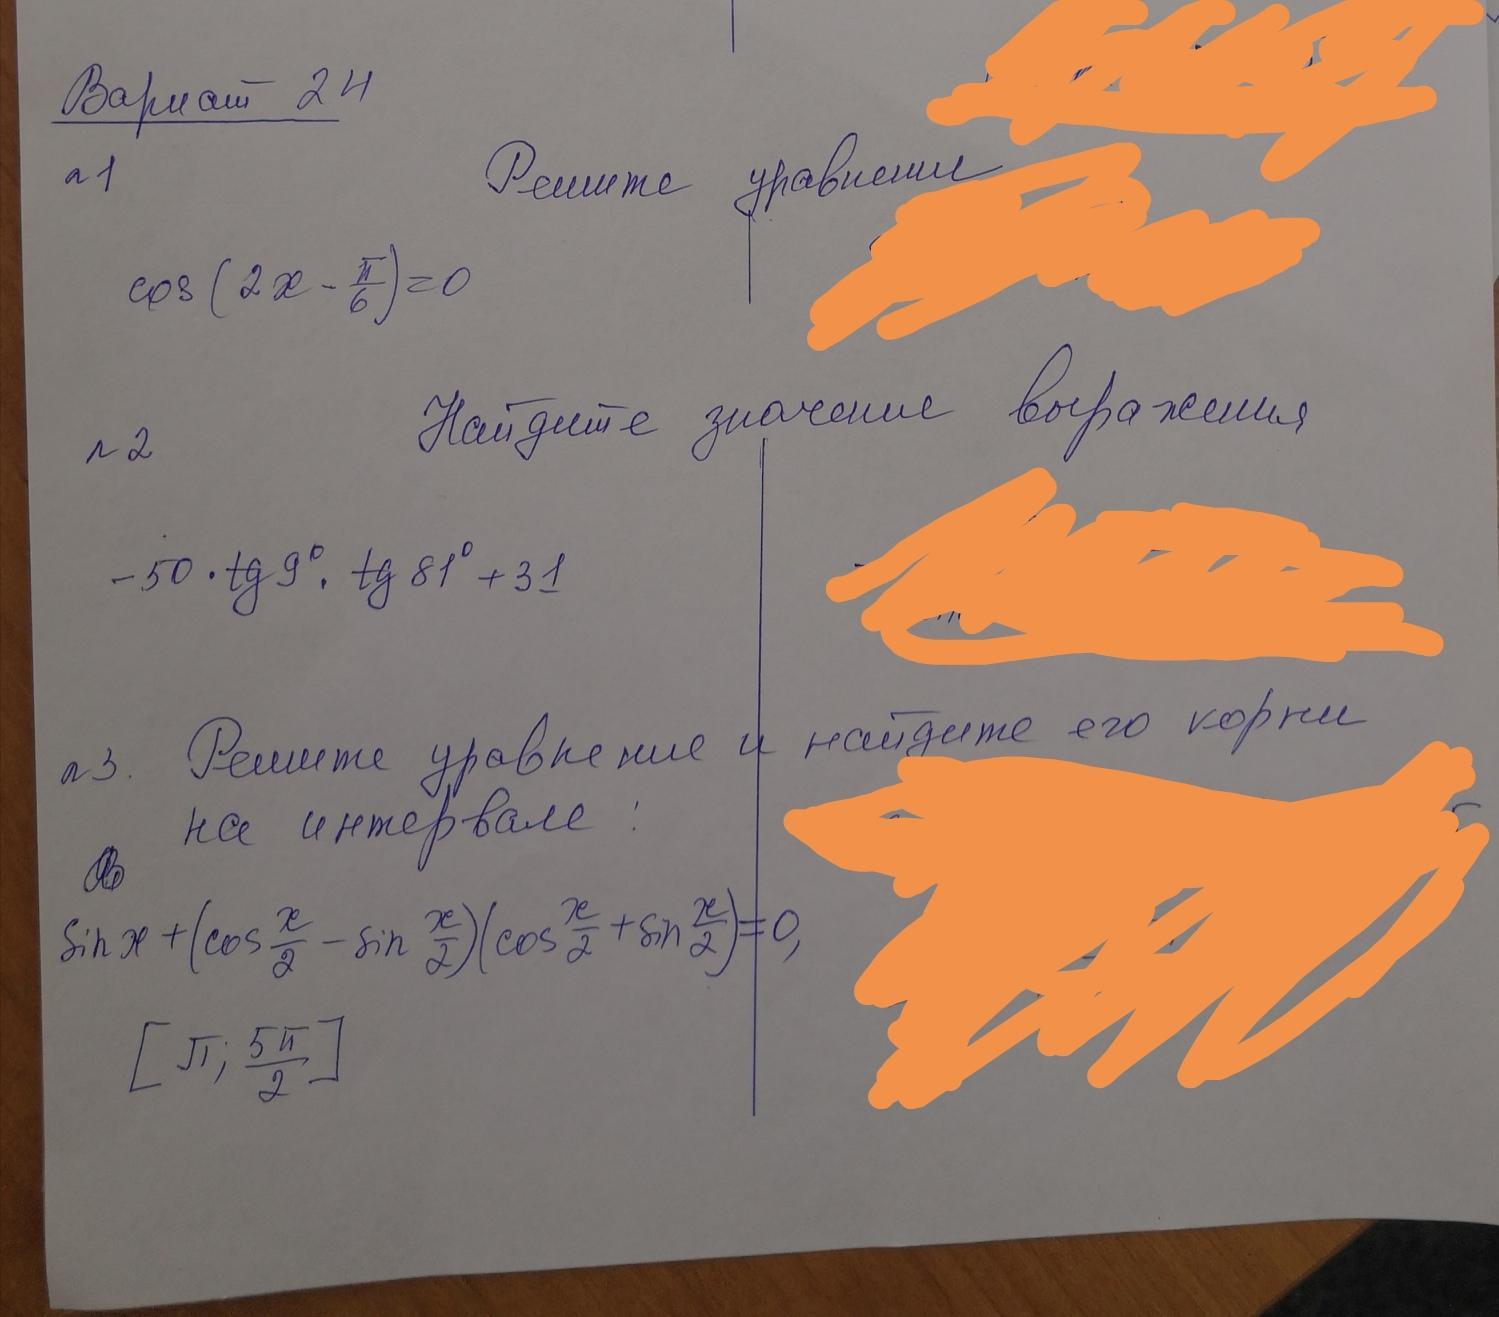 Вариант 24
№1
Решите уравнения
cos(2x - π/6) = 0
№2
Найдите значение выражения
-50 · tg 9° · tg 81° + 31
№3. Решите уравнение и найдите его корни
на интервале:
sin x + (cos x/2 - sin x/2)(cos x/2 + sin x/2) = 0,
[π; 5π/2]